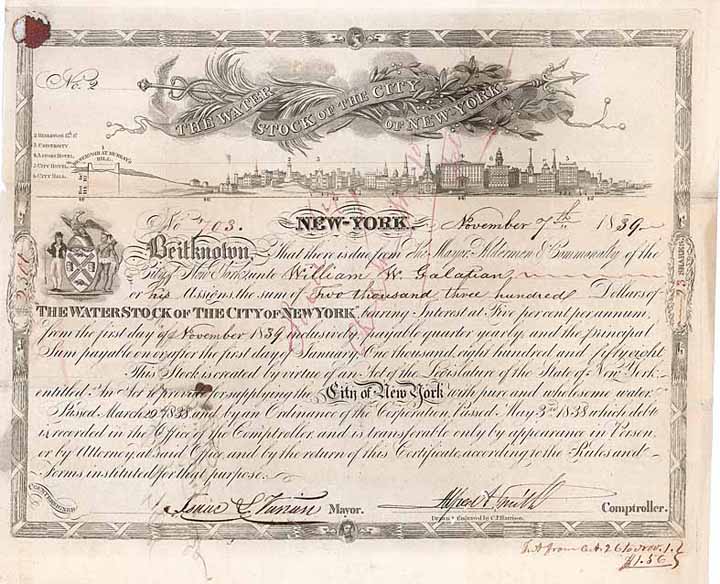 No. 2
THE WATER STOCK OF THE CITY OF NEW-YORK.
3 UNIVERSITY
4 ASTOR HOTEL
5 CITY HOTEL
6 CITY HALL
RESERVOIR AT MURRAY'S HILL
No. 703. NEW-YORK. November 7th 1839
Be it known, That there is due from The Mayor Aldermen & Commonalty of the
City of New York unto William W. Galatian
or his Assigns, the sum of Two thousand three hundred Dollars of
THE WATER STOCK OF THE CITY OF NEW YORK bearing Interest at Five per cent per annum,
from the first day of November 1839 inclusively, payable quarter yearly, and the principal
Sum payable on or after the first day of January One thousand eight hundred and fifty eight
This Stock is created by virtue of an Act of the Legislature of the State of New York
entitled An Act to provide for supplying the City of New York with pure and wholesome water.
Passed March 29 1838 and by an Ordinance of the Corporation, Passed May 3rd 1838 which debt
is recorded in the Office of the Comptroller and is transferable only by appearance in Person,
or by Attorney, at said Office, and by the return of this Certificate, according to the Rules and
Forms instituted for that purpose.
23 SHARES
2300
COUNTERSIGNED
Isaac L. Varian Mayor.
Alfred A. Smith Comptroller.
Drawn & Engraved by C.P. Harrison.
to Nov. 1.
$1.56